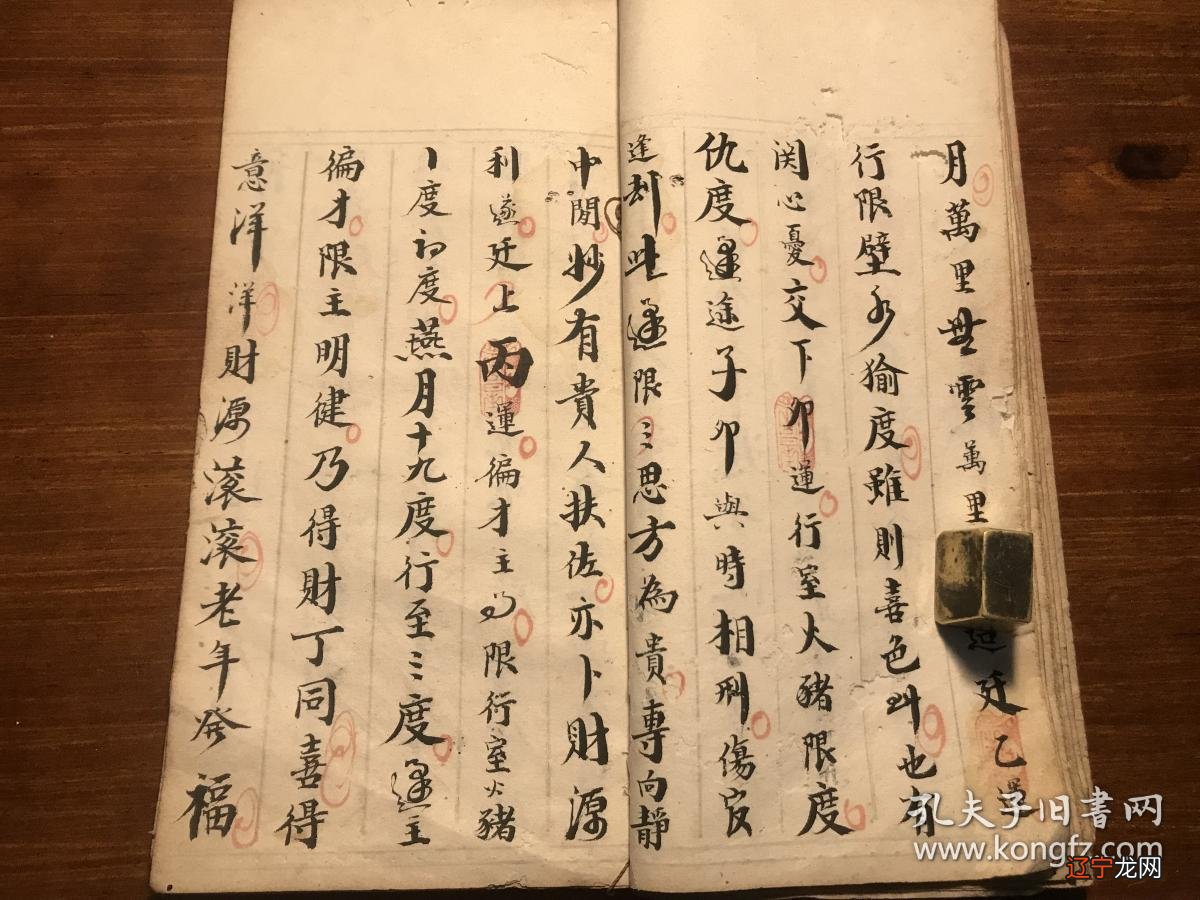 月萬里無雲萬里廷乙運
行限壁水㺄度雖則喜色斗也有
関心憂交下卯運行室火豬限度
仇度逢途子卯與時相刑傷官
逢刦此逢限三思方為貴專向靜
中閒妙有貴人扶佐亦卜財源
利遂廷上丙運徧才主為限行室火豬
丨度初度燕月十九度行至三度逢主
徧才限主明健乃得財丁同喜得
意洋洋財源滾滾老年發福
孔夫子旧書网
www.kongfz.com
辽宁龙网